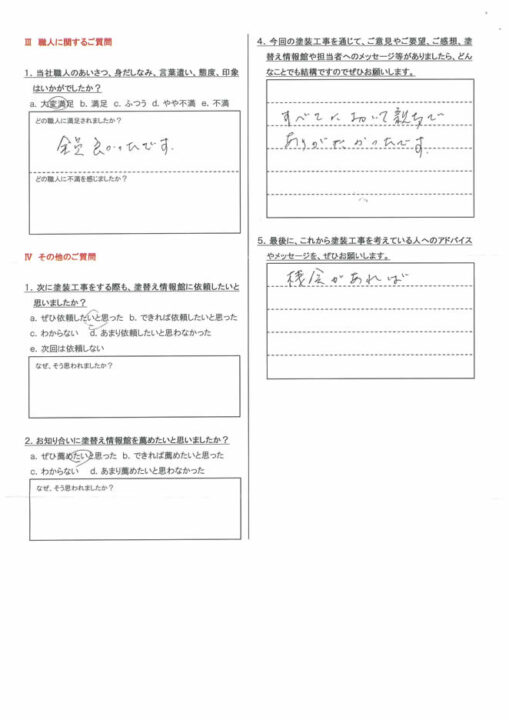 Ⅲ 職人に関するご質問
1. 当社職人のあいさつ、身だしなみ、言葉遣い、態度、印象
はいかがでしたか?
a. 大変満足 b. 満足 c. ふつう d. やや不満 e. 不満
どの職人に満足されましたか?
全員良かったです.
どの職人に不満を感じましたか?
Ⅳ その他のご質問
1. 次に塗装工事をする際も、塗替え情報館に依頼したいと
思いましたか?
a. ぜひ依頼したいと思った b. できれば依頼したいと思った
c. わからない d. あまり依頼したいと思わなかった
e. 次回は依頼しない
なぜ、そう思われましたか?
2. お知り合いに塗替え情報館を薦めたいと思いましたか?
a. ぜひ薦めたいと思った b. できれば薦めたいと思った
c. わからない d. あまり薦めたいと思わなかった
なぜ、そう思われましたか?
4. 今回の塗装工事を通じて、ご意見やご要望、ご感想、塗
替え情報館や担当者へのメッセージ等がありましたら、どん
なことでも結構ですのでぜひお願いします。
すべてにおいて親切で
ありがたかったです.
5. 最後に、これから塗装工事を考えている人へのアドバイス
やメッセージを、ぜひお願いします。
機会があれば